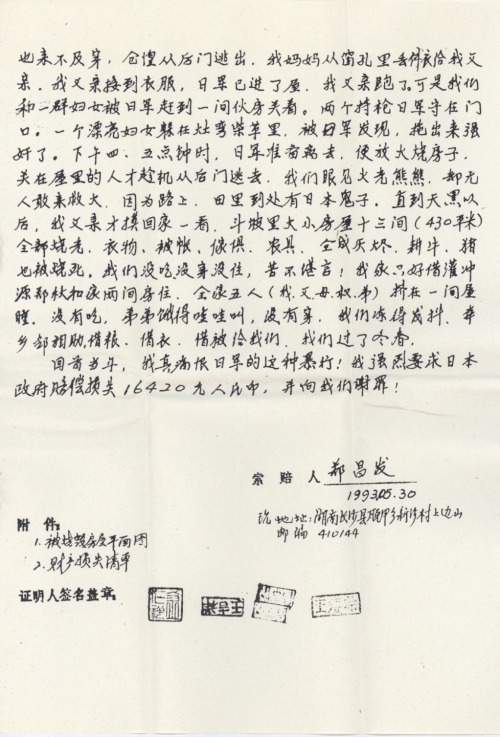 也来不及穿，仓惶从后门逃出。我妈妈从窗孔里丢件衣给我父
亲。我父亲接到衣服，日军已进了屋。我父亲跑了。可是我们
和一群妇女被日军赶到一间伙房关着。两个持枪日军守在门
口。一个漂亮妇女躲在灶弯柴草里，被日军发现，拖出来强
奸了。下午四、五点钟时，日军准备离去，便放火烧房子，
关在屋里的人才趁机从后门逃去，我们眼见火光熊熊，却无
人敢来救火，因为路上、田里到处有日本鬼子。直到天黑以
后，我父亲才摸回家一看，斗坡里大小房屋十三间（430平米）
全部烧光，衣物、被帐、傢俱、农具、全成灰烬，耕牛、猪
也被烧死。我们没吃没穿没住，苦不堪言！我家只好借灌冲
源郑秋和家两间房住，全家五人（我、父、母、叔、弟）挤在一间屋
睡，没有吃，弟弟饿得哇哇叫，没有穿，我们冻得发抖，幸
乡邻相助借粮、借衣、借被给我们，我们过了冬春。
回首当年，我真痛恨日军的这种暴行！我强烈要求日本
政府赔偿损失16420元人民币，并向我们谢罪！
索赔人 郑昌发
1993.05.30
现地址：湖南长沙县顺甲乡新沙村上边山
邮编 410144
附件：
1. 被烧毁房屋平面图
2. 财产损失清单
证明人签名盖章：